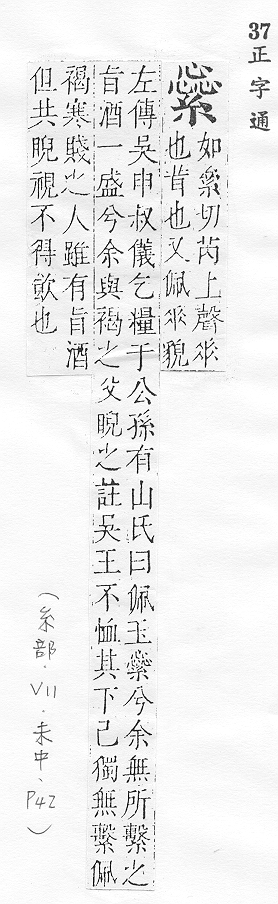 37正字通
繠
如絫切芮上聲𠂹
也 也又佩𠂹貌
左傳吳申叔儀乞糧于公孫有山氏曰佩玉繠兮余無所繫之
旨酒一盛兮余與褐之父睨之註吳王不恤其下己獨無繫佩
褐寒賤之人雖有旨酒
但共睨視不得飲也
(糸部.VII.未中.P42)